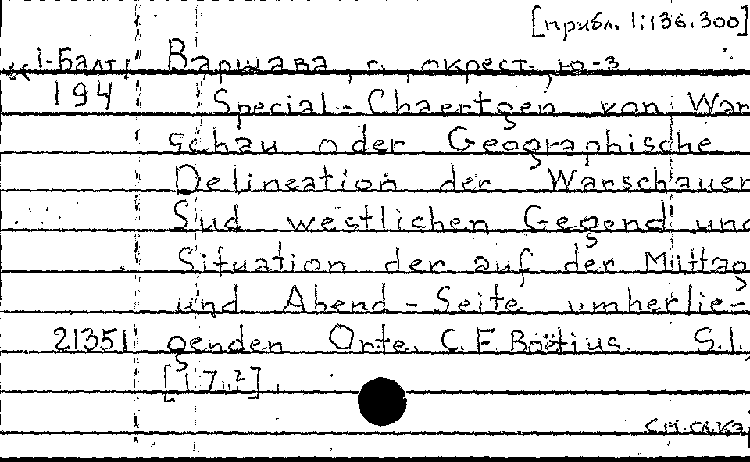 [прибл. 1:136.300]
1-Балт. Варшава, г., окрест., ю-з
194 Special-Chaertgen von War
schau oder Geographische
Delineation der Warschauer
Sud westlichen Gegend und
Situation der auf der Mittag
und Abend-Seite umherlie-
21351 genden Orte. C.F. Boëtius. S.l.,
[17.?].
см. св. кат.